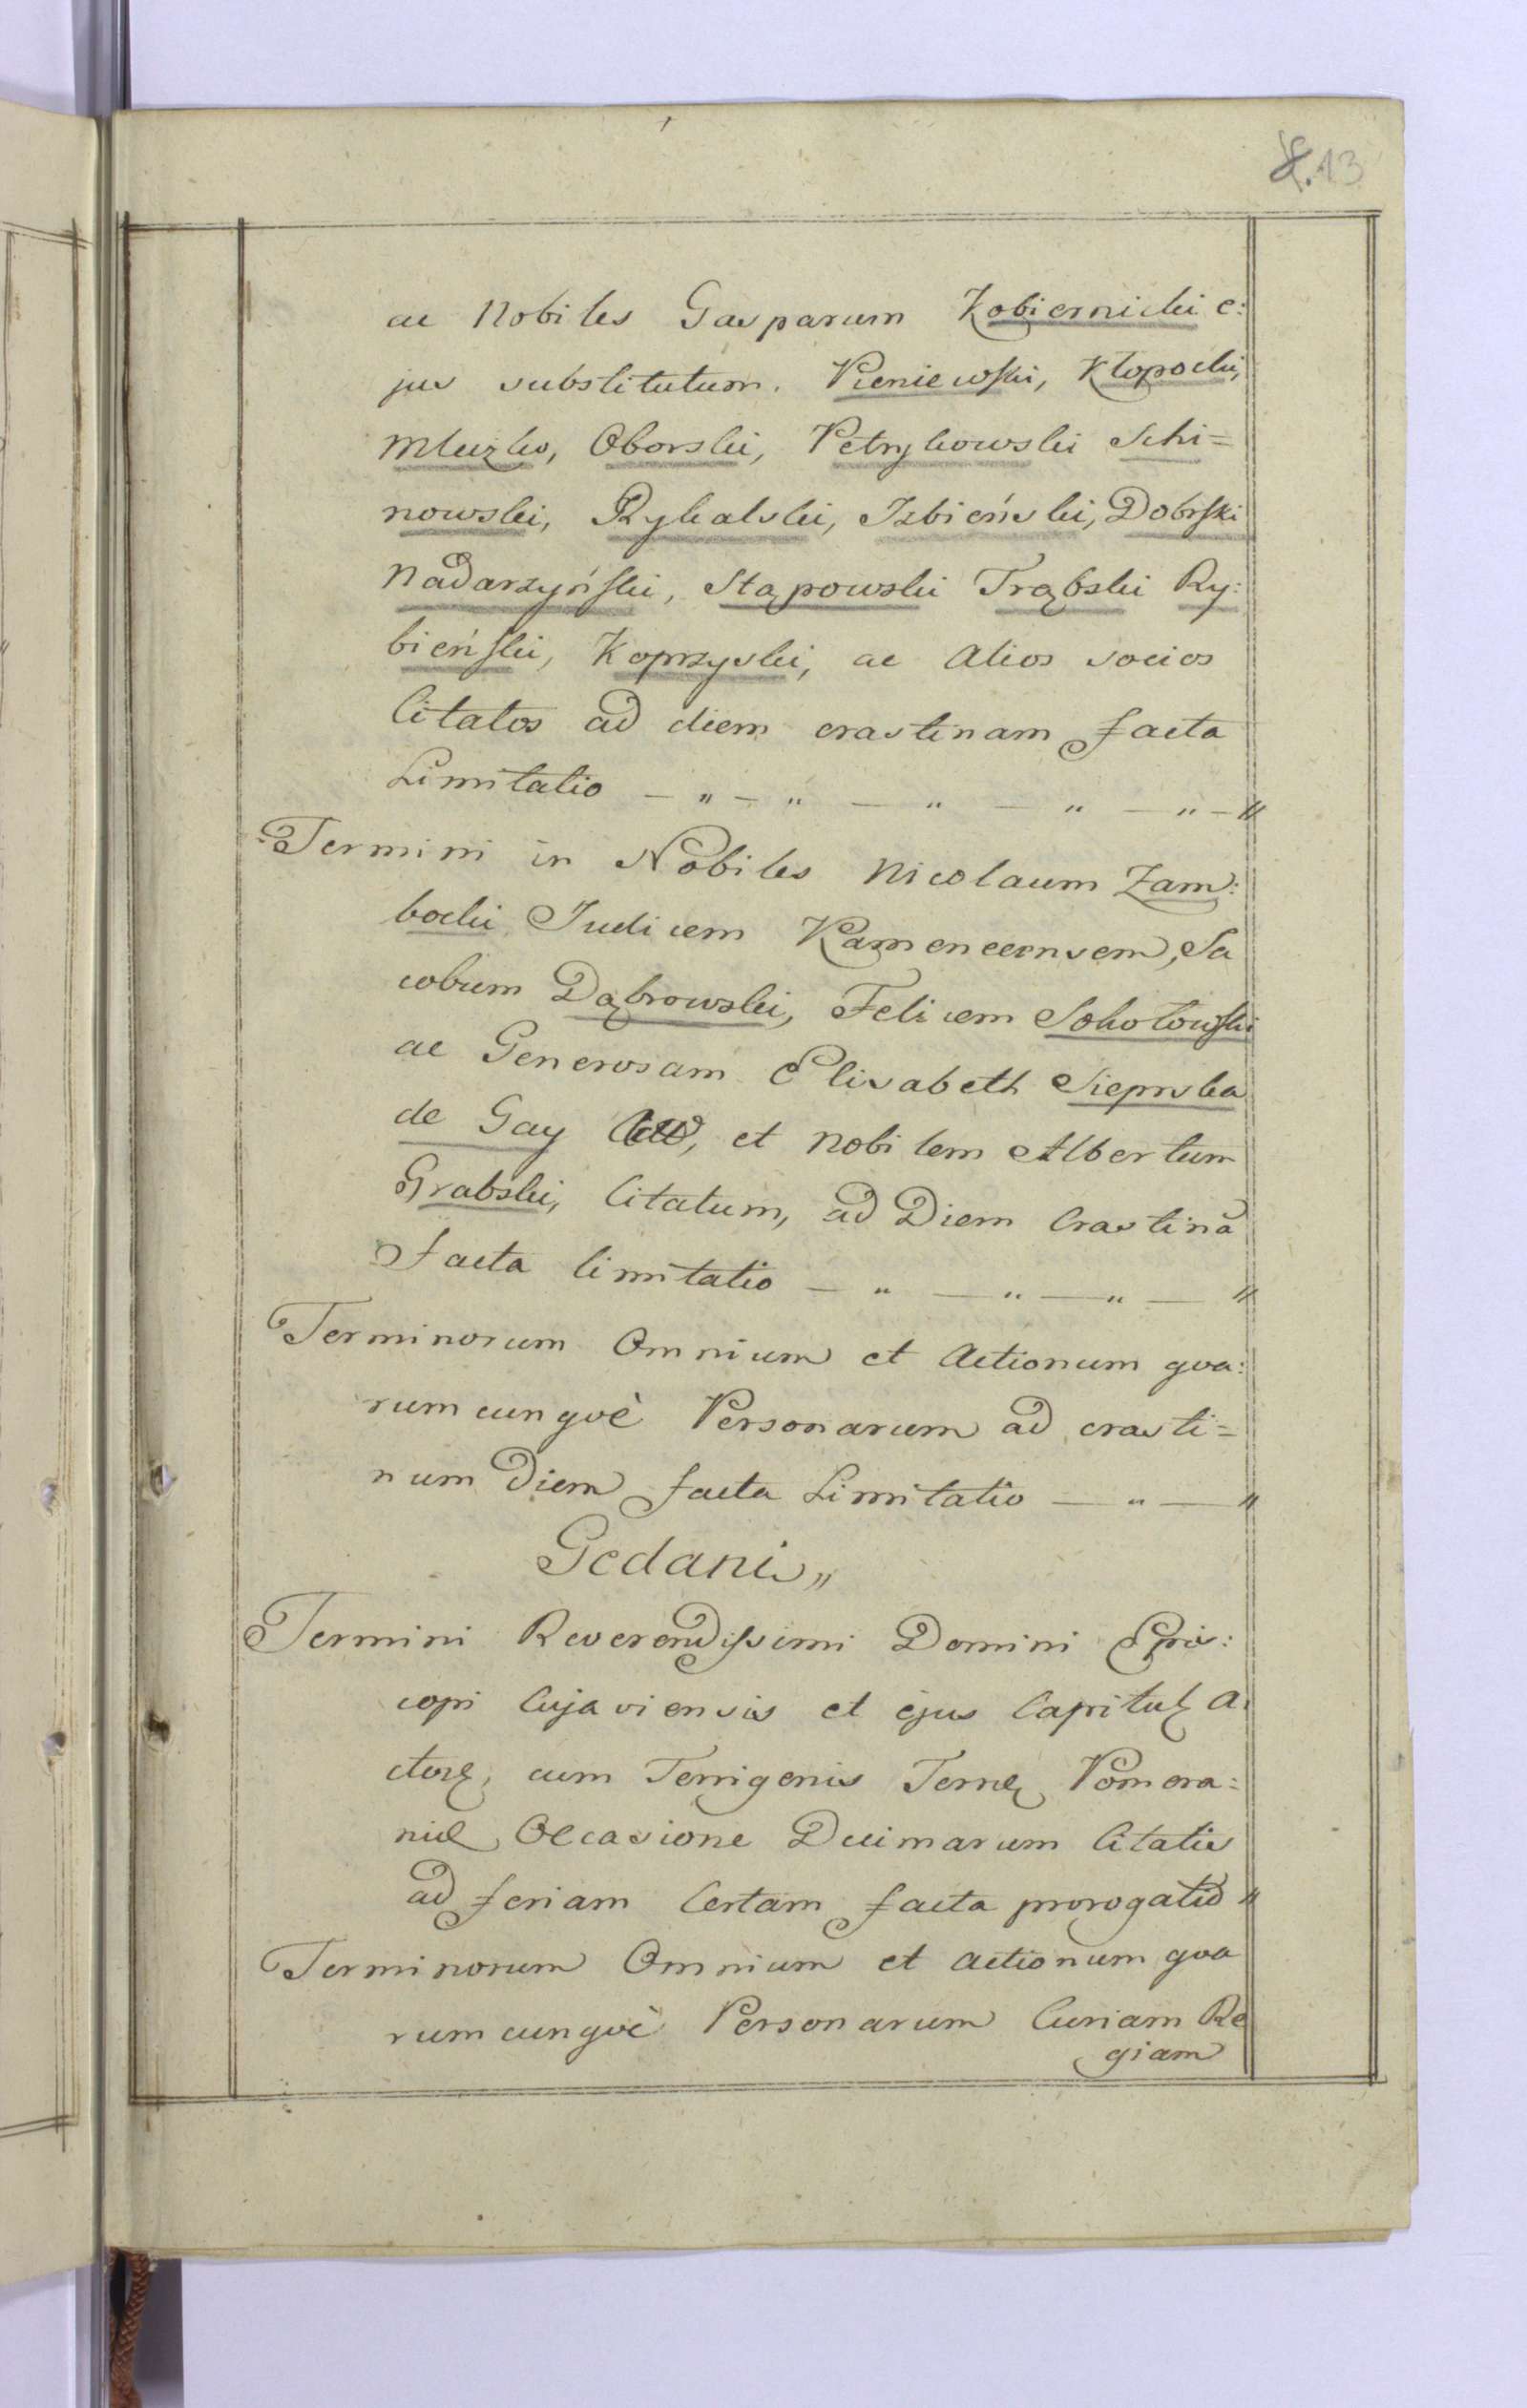 8. 13
ac Nobiles Gasparum Kobiernicki e:
jus substitutum. Pieniewski, Kłopocki,
Mluzko, Oborski, Petrykowski Schi=
nowski, Rykalski, Izbieński, Dobrski
Nadarzyński, Stąpowski Trąbski Ry:
bieński, Koprzyski, ac Alios socios
Citatos ad diem crastinam facta
Limitatio — " — " — " — " — " — "
Termini in Nobiles Nicolaum Zam:
bocki Judicem Kamenecensem, Ja
cobum Dąbrowski, Felicem Sokołowski
ac Generosam Elisabeth Sieprska
de Gay, et Nobilem Albertum
Grabski, Citatum, ad Diem Crastinã
facta limitatio — " — " — " — "
Terminorum Omnium et Actionum qva:
rumcunqvè Personarum ad crasti=
num Diem facta Limitatio — " — "
Gedani "
Termini Reverendissimi Domini Epis:
copi Cujaviensis et ejus Capitulę A:
ctorę, cum Terrigenis Terrę Pomera:
nię Occasione Decimarum Citatis
ad feriam Certam facta prorogatio "
Terminorum Omnium et Actionum qva
rumcunqvè Personarum Curiam Re
giam